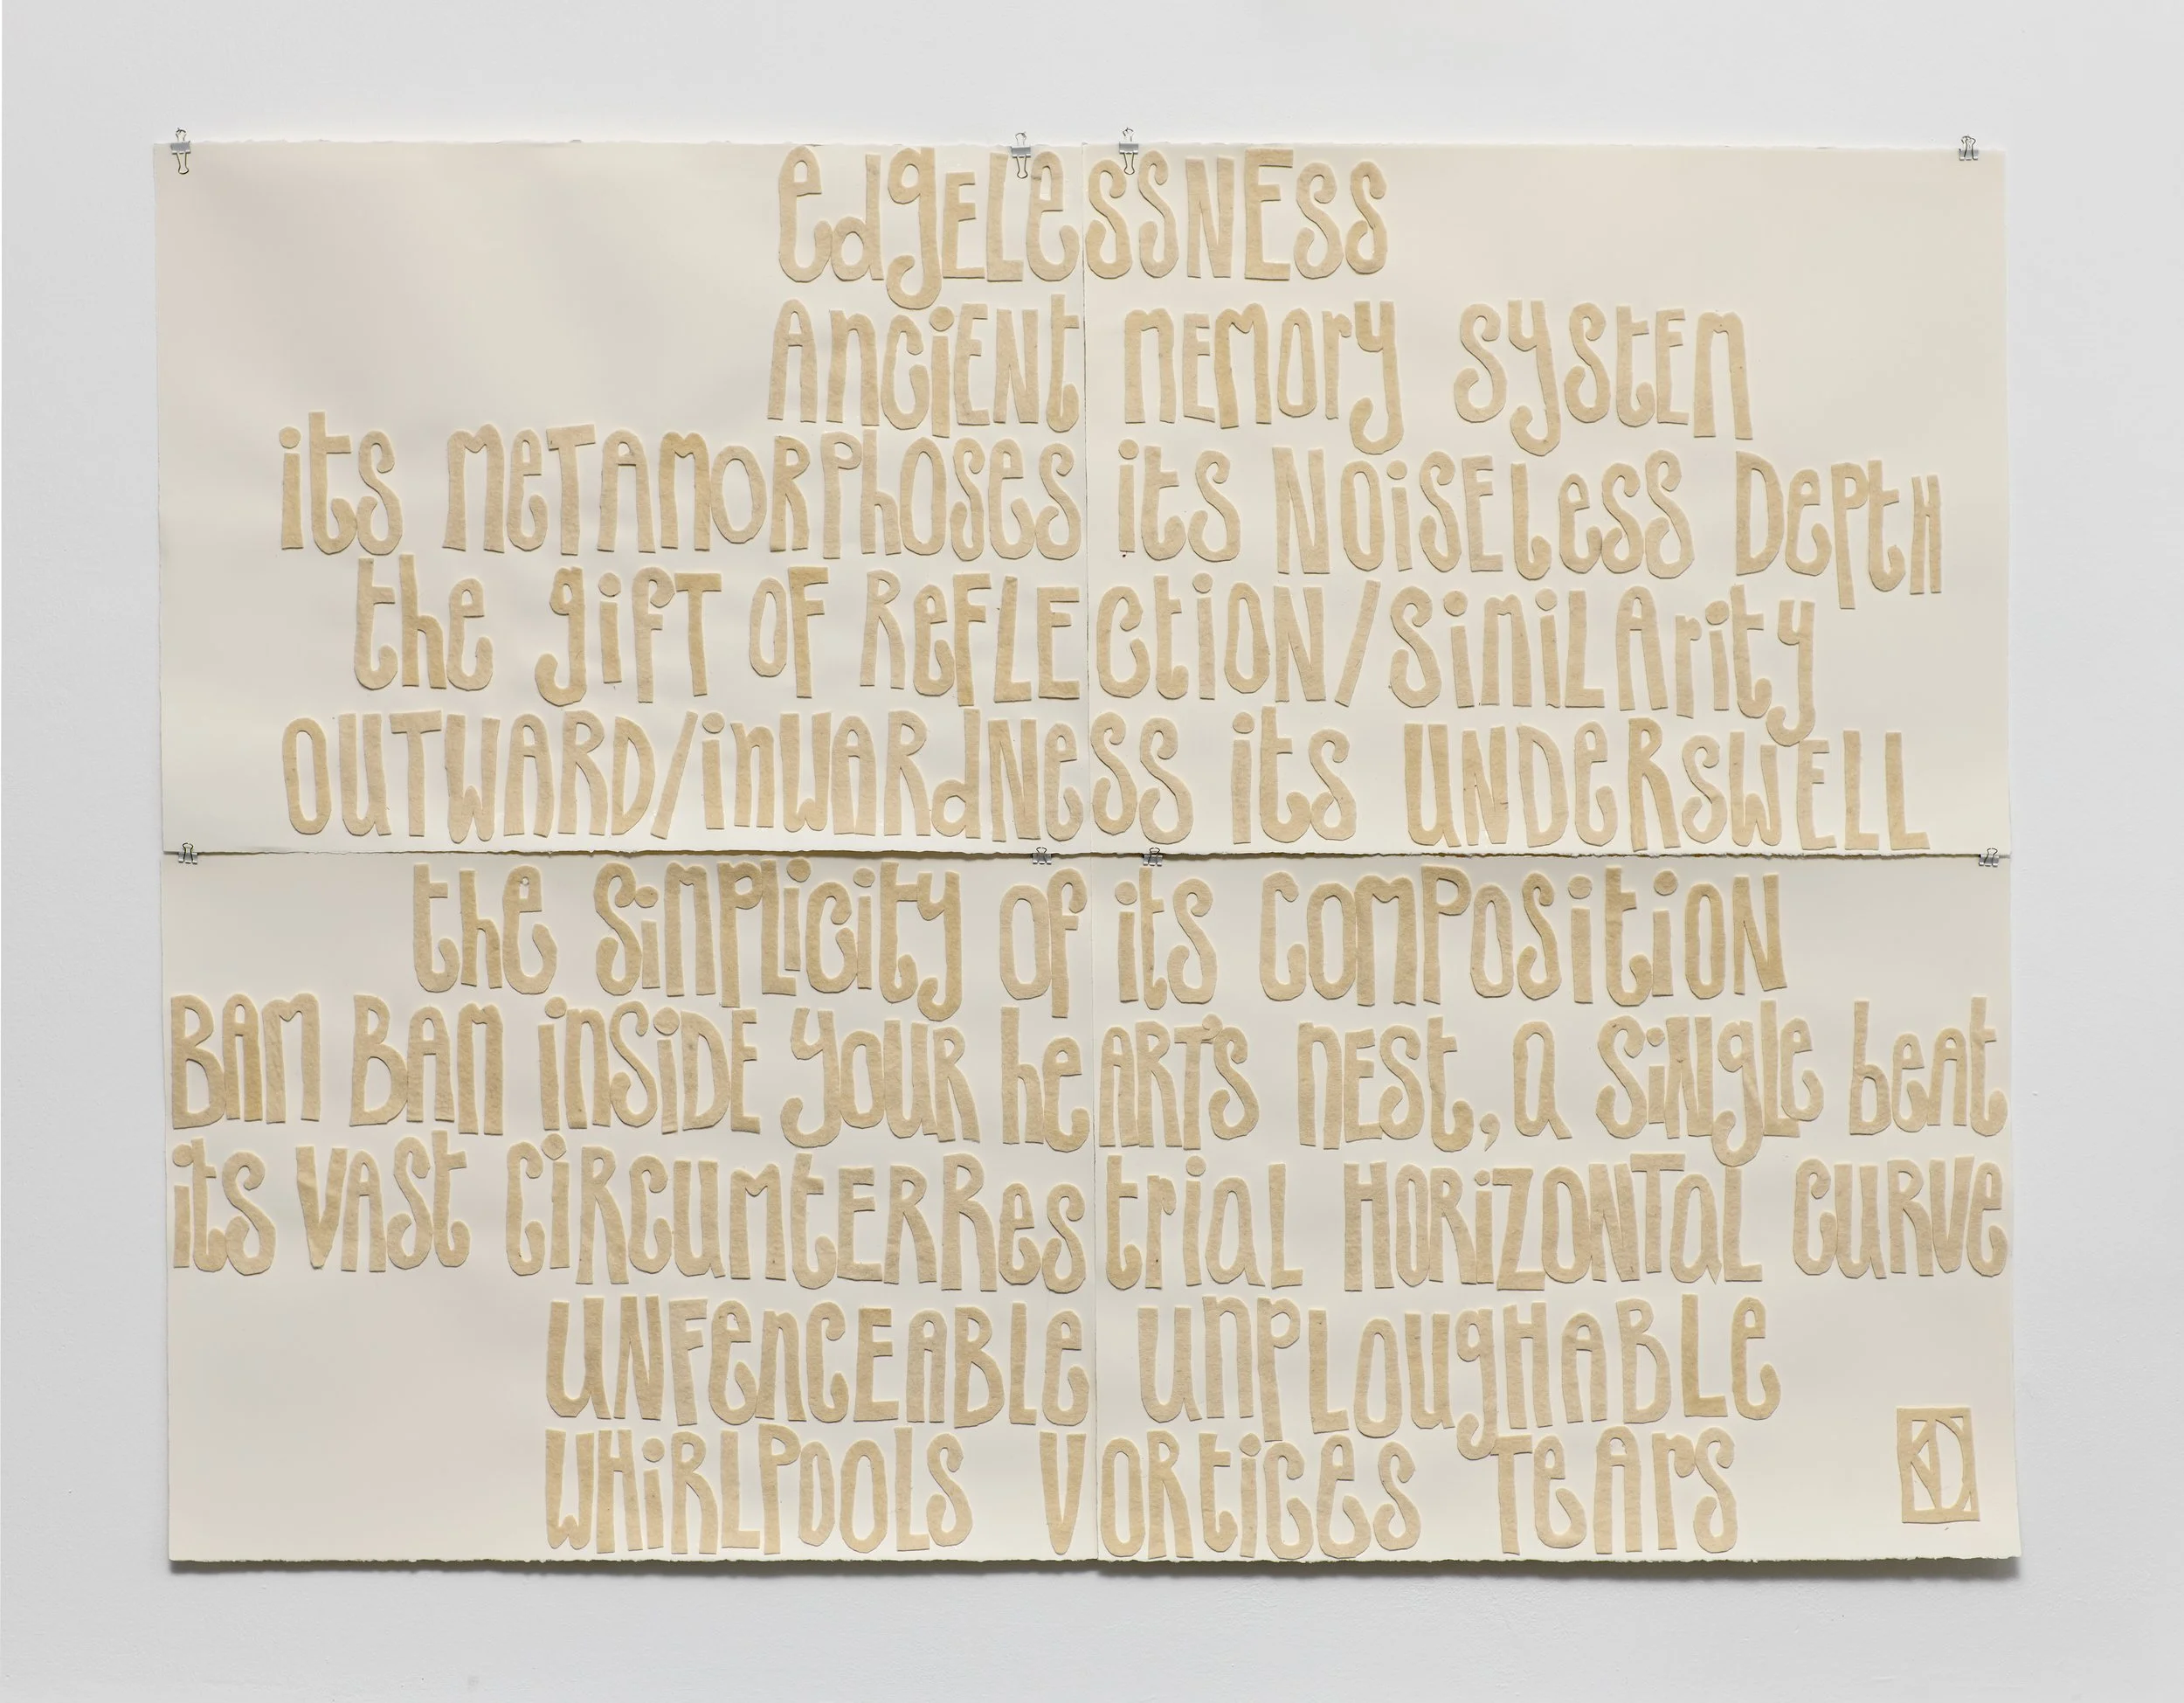 edgELessNESS
ANCiENt MEMOry SyStEM
its MeTAMORPhOSes its NOiSELess DePtH
the gifT OF ReFLECtiON/SimiLArity
OUTWARD/inWARdNess its UNDeRSWELL
the SiMPLicity Of its COMPOSitiON
BAM BAM inSiDE yOUR heART'S NESt, a SiNgLe beAt
its VASt CiRCUMtERRestriaL HORiZONTaL CURVe
UNFeNCEABLe UNPLOugHABLe
WHiRLPOOLS VORtiCeS TeArS
KD